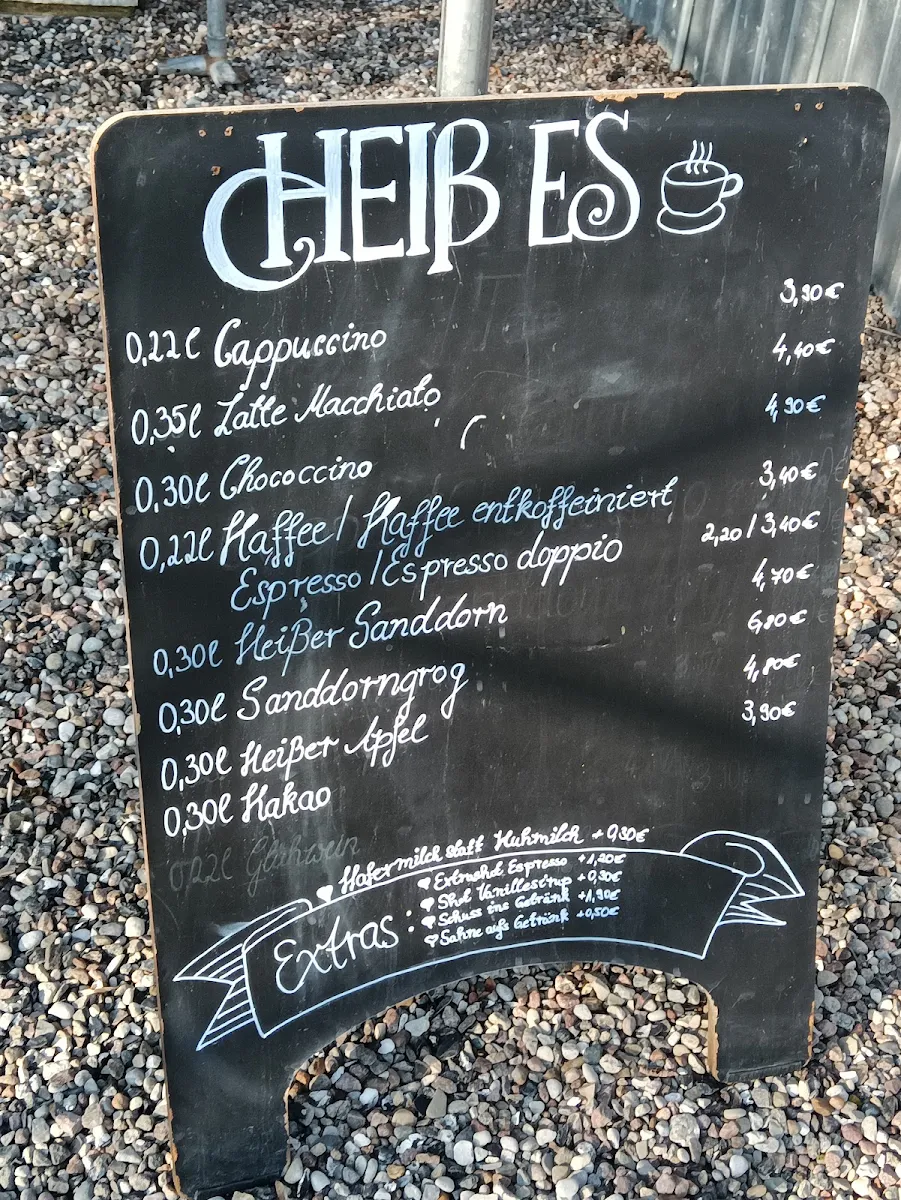 HEIẞES
0,22l Cappuccino 3,90€
0,35l Latte Macchiato 4,40€
0,30l Chococcino 4,90€
0,22l Kaffee / Kaffee entkoffeiniert 3,40€
Espresso / Espresso doppio 2,20 / 3,40€
0,30l Heißer Sanddorn 4,70€
0,30l Sanddorngrog 6,80€
0,30l Heißer Apfel 4,80€
0,30l Kakao 3,90€
0,22l Glühwein
Extras:
Hafermilch statt Kuhmilch +0,30€
Extrashot Espresso +1,20€
Shot Vanillesirup +0,90€
Schuss ins Getränk +1,90€
Sahne aufs Getränk +0,50€